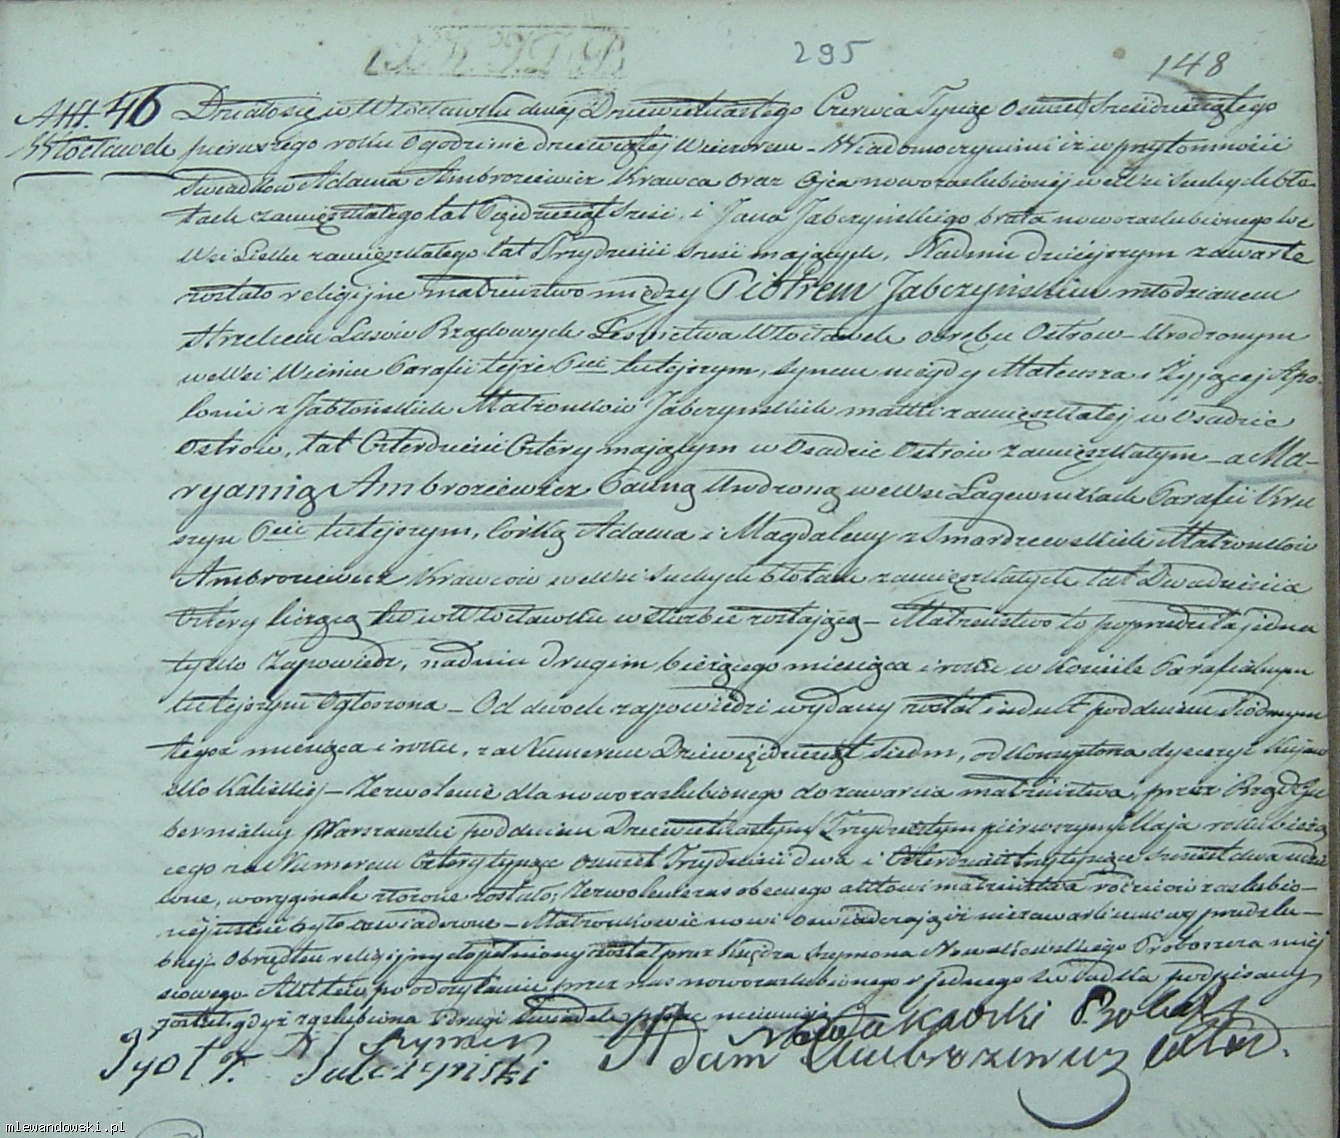 295
148
Akt. 46
Włocławek
Działo się w Włocławku dnia Dziewiętnastego Czerwca Tysiąc Ośmset Sześdziesiątego
pierwszego roku o godzinie dziewiątej wieczorem – Wiadomo czynimi iż w przytomności
świadków Adama Ambroziewicz Krawca oraz ojca nowozaslubionej we Wsi Suchych bło-
tach zamięszkałego lat Pięćdziesiąt sześć, i Jana Jabczyńskiego brata nowozaslubionego we
Wsi zamięszkałego lat Trzydzieści sześć mających, Na dniu dzisiejszym zawarte
zostało religijne małżeństwo między Piotrem Jabczyńskim młodzianem
Strzelcem Lasów Rządowych Leśnictwa Włocławek obrębu Ostrów – urodzonym
we Wsi Wieniu Parafii tejże Pcie tutejszym, synem niegdy Mateusza i Żyjącej Apo-
lonii z Jabłońskich Małżonków Jabczyńskich matki zamięszkałej w Osadzie
Ostrów, lat Czterdzieści Cztery mającym w Osadzie Ostrów zamięszkałym – a Ma-
ryanną Ambroziewicz Panną Urodzoną we Wsi Łagiewnikach Parafii Kru
szyn Pcie tutejszym, Córką Adama i Magdaleny z Smardzewskich Małżonków
Ambroziewicz Krawców we Wsi Suchych błotach zamięszkałych lat Dwadzieścia
Cztery liczącą tu w Włocławku w służbie zostającą – Małżeństwo to poprzedziła jedna
tylko Zapowiedź, na dniu drugim bieżącego miesiąca i roku w Kościele Parafialnym
tutejszym Ogłoszona – Od dwoch zapowiedzi wydany został indult pod dniem siódmym
tegoż miesiąca i roku, za Numerem Dziewięćdziesiąt siedm, od Konsystorza dyecezyi Kujaw
sko Kaliskiej – Zezwolenie dla nowozaslubionego do zawarcia małżeństwa, przez Rząd Gu
bernialny Warszawski pod dniem Dziewiętnastym/Trzydziestym pierwszym Maja roku bieżą
cego za Numerem Cztery tysiące ośmset Trzydzieści dwa i Czterdzieści trzy tysiące sześćset dwa udzie
lone, w oryginale złożone zostało; Zezwolenie zas obecnego aktowi małżeństwa rodziców zaslubio-
nej ustnie było oświadczone – Małżonkowie nowi oświadczają iż niezawarli umowy przedślu-
bnej – Obrzędu religijny dopełniony został przez Księdza Szymona Nowakowskiego Proboszcza miej
scowego – Akt ten po odczytaniu przez nas nowozaslubionego i jednego świadka podpisany
został, gdyż zaslubiona i drugi świadek pisać nieumieją
X Szymon Nowakowski Proboszcz
Pyotr Jabczyński Adam Ambroziewicz
mlewandowski.pl